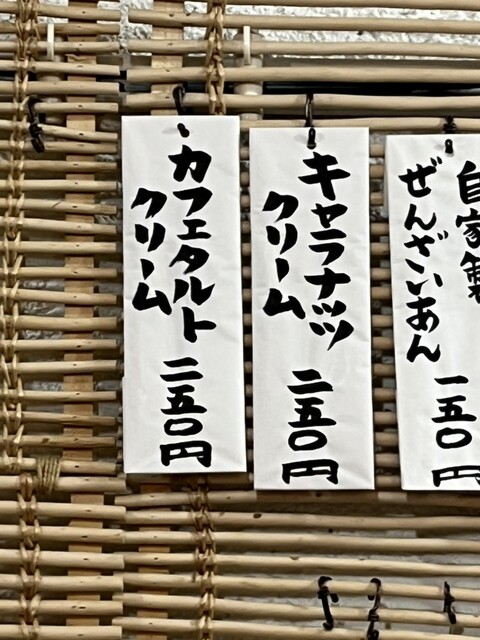 自家製
ぜんざいあん
一五〇円
キャラナッツ
クリーム
二五〇円
カフェタルト
クリーム
二五〇円